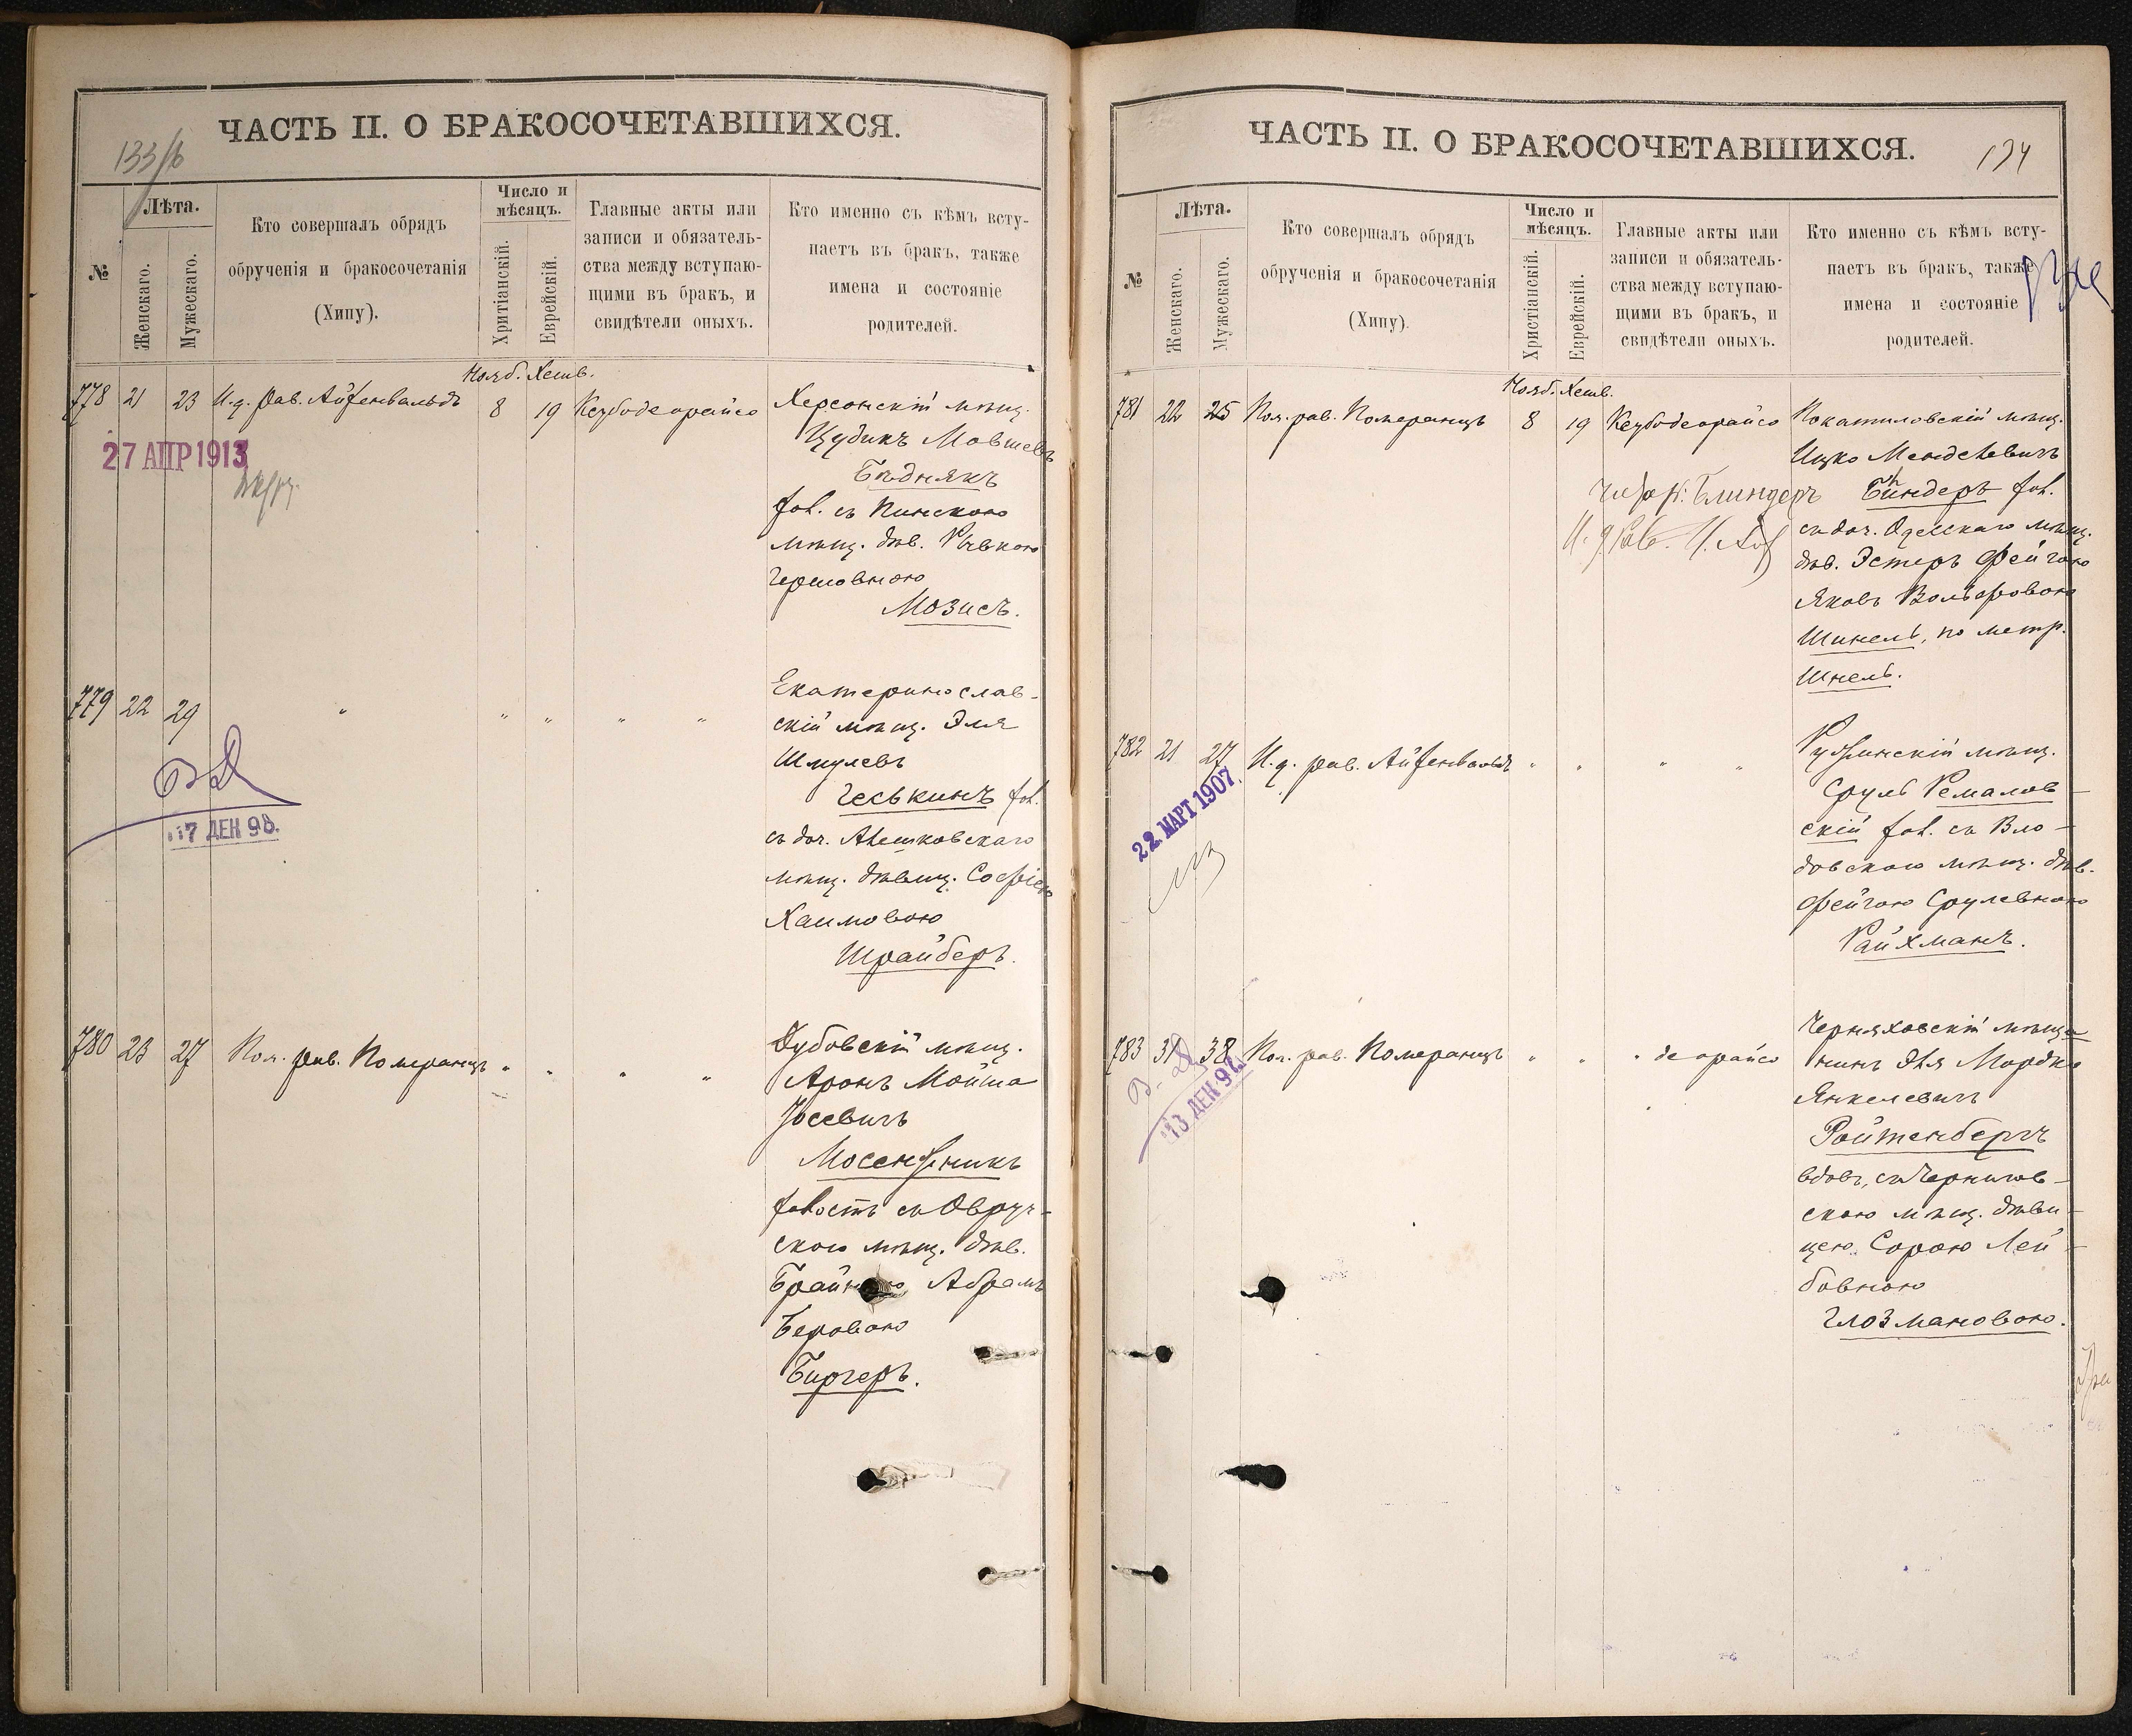 133/б
ЧАСТЬ II. О БРАКОСОЧЕТАВШИХСЯ.
№
Лѣта.
Женскаго.
Мужескаго.
Кто совершалъ обрядъ
обрученія и бракосочетанія
(Хипу).
Число и
мѣсяцъ.
Хритіанскій.
Еврейскій.
Главные акты или
записи и обязатель-
ства между вступаю-
щими въ бракъ, и
свидѣтели оныхъ.
Кто именно съ кѣмъ всту-
паетъ въ бракъ, также
имена и состояніе
родителей.
Нояб. Хешв.
778 21 23 И.д. Рав. Айзенвальдъ 8 19 Кезубодеорайсо Херсонскій мѣщ.
Цудикъ Мовшевъ
27 АПР 1913
Бѣднякъ
хол. съ Пинскою
мѣщ. дѣв. Ривкою
Гершовною
Мозисъ.
779 22 29 " " " " " Екатеринослав-
скій мѣщ. Эля
Шмулевъ
Геськинъ хол.
17 ДЕН 98.
съ доч. Алешковскаго
мѣщ. дѣвиц. Софіею
Хаимовою
Шрайберъ.
780 23 27 Пом. рав. Померанцъ " " " " Дубовскій мѣщ.
Аронъ Мойша
Іосевичъ
Мосензникъ
холостъ съ Овруч-
скою мѣщ. дѣв.
Абрамъ
Беровою
Биргеръ.
ЧАСТЬ II. О БРАКОСОЧЕТАВШИХСЯ.
134
№
Лѣта.
Женскаго.
Мужескаго.
Кто совершалъ обрядъ
обрученія и бракосочетанія
(Хипу).
Число и
мѣсяцъ.
Христіанскій.
Еврейскій.
Главные акты или
записи и обязатель-
ства между вступаю-
щими въ бракъ, и
свидѣтели оныхъ.
Кто именно съ кѣмъ всту-
паетъ въ бракъ, также
имена и состояніе
родителей.
Нояб. Хешв.
781 22 25 Пом. рав. Померанцъ 8 19 Кезубодеорайсо Покатиловскій мѣщ.
Ицко Менделевичъ
Блиндеръ Биндеръ хол.
И. д. Рав. съ доч. Одесскаго мѣщ.
дѣв. Эстеръ Фейгою
Яковъ Вольфовою
Шинель, по метр.
Шнель.
782 21 27 И. д. рав. Айзенвальдъ " " " " мѣщ.
Сруль Ремалов-
22. МАРТ 1907.
скій хол. съ Вло-
довскою мѣщ. дѣв.
Фейгою Срулевною
Райхманъ.
783 31 38 Пом. рав. Померанцъ " " " деорайсо Черняховскій мѣща-
нинъ Эля Мордко
13 ДЕН 98
Янкелевичъ
Ройтенбергъ
вдов, съ Чернигов-
скою мѣщ. дѣви-
цею Сорою Лей-
бовною
Глозмановою.